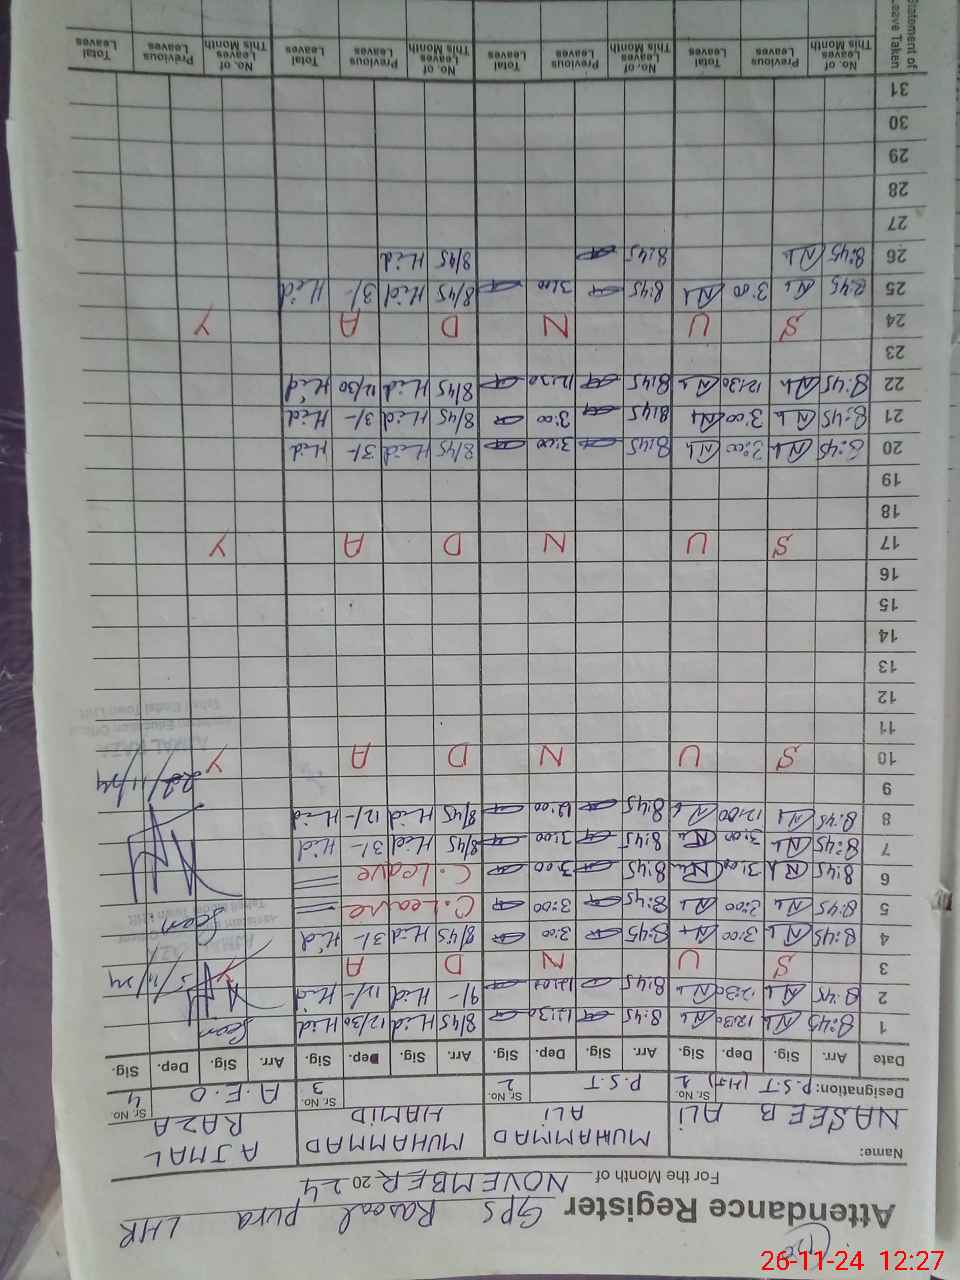 Attendance Register GPS Rasool pura LHR
For the Month of NOVEMBER 2024
Name: NASEEB ALI MUHAMMAD ALI MUHAMMAD HAMID AJMAL RAZA
Designation: P.S.T (HT) Sr. No. 1 P.S.T Sr. No. 2 Sr. No. 3 A.E.O Sr. No. 4
Date Arr. Sig. Dep. Sig. Arr. Sig. Dep. Sig. Arr. Sig. Dep. Sig. Arr. Sig. Dep. Sig.
1 8:45 12:30 8:45 12:30 8/45 Hid 12/30 Hid Seen
2 8:45 12:30 8:45 9/- Hid 12/- Hid
3 S U N D A Y 5/11/24
4 8:45 3:00 8:45 3:00 8/45 Hid 3/- Hid
5 8:45 3:00 8:45 3:00 C. Leave Seen
6 8:45 3:00 8:45 3:00 C. Leave
7 8:45 3:00 8:45 3:00 8/45 Hid 3/- Hid
8 8:45 12:00 8:45 12:00 8/45 Hid 12/- Hid
9 22/11/24
10 S U N D A Y
11
12
13
14
15
16
17 S U N D A Y
18
19
20 8:45 3:00 8:45 3:00 8/45 Hid 3/- Hid
21 8:45 3:00 8:45 3:00 8/45 Hid 3/- Hid
22 8:45 12:30 8:45 12:30 8/45 Hid 12/30 Hid
23
24 S U N D A Y
25 8:45 3:00 8:45 3:00 8/45 Hid 3/- Hid
26 8:45 8:45 8/45 Hid
27
28
29
30
31
Statement of Leave Taken No. of Leaves This Month Previous Leaves Total Leaves No. of Leaves This Month Previous Leaves Total Leaves No. of Leaves This Month Previous Leaves Total Leaves No. of Leaves This Month Previous Leaves Total Leaves
26-11-24 12:27